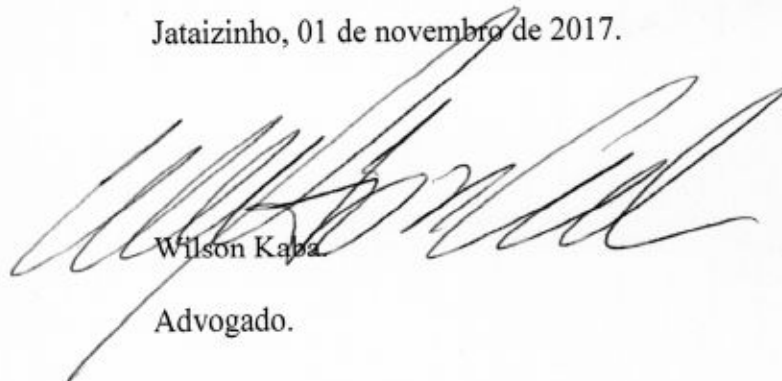 Jataizinho, 01 de novembro de 2017.
Wilson Kaba.
Advogado.